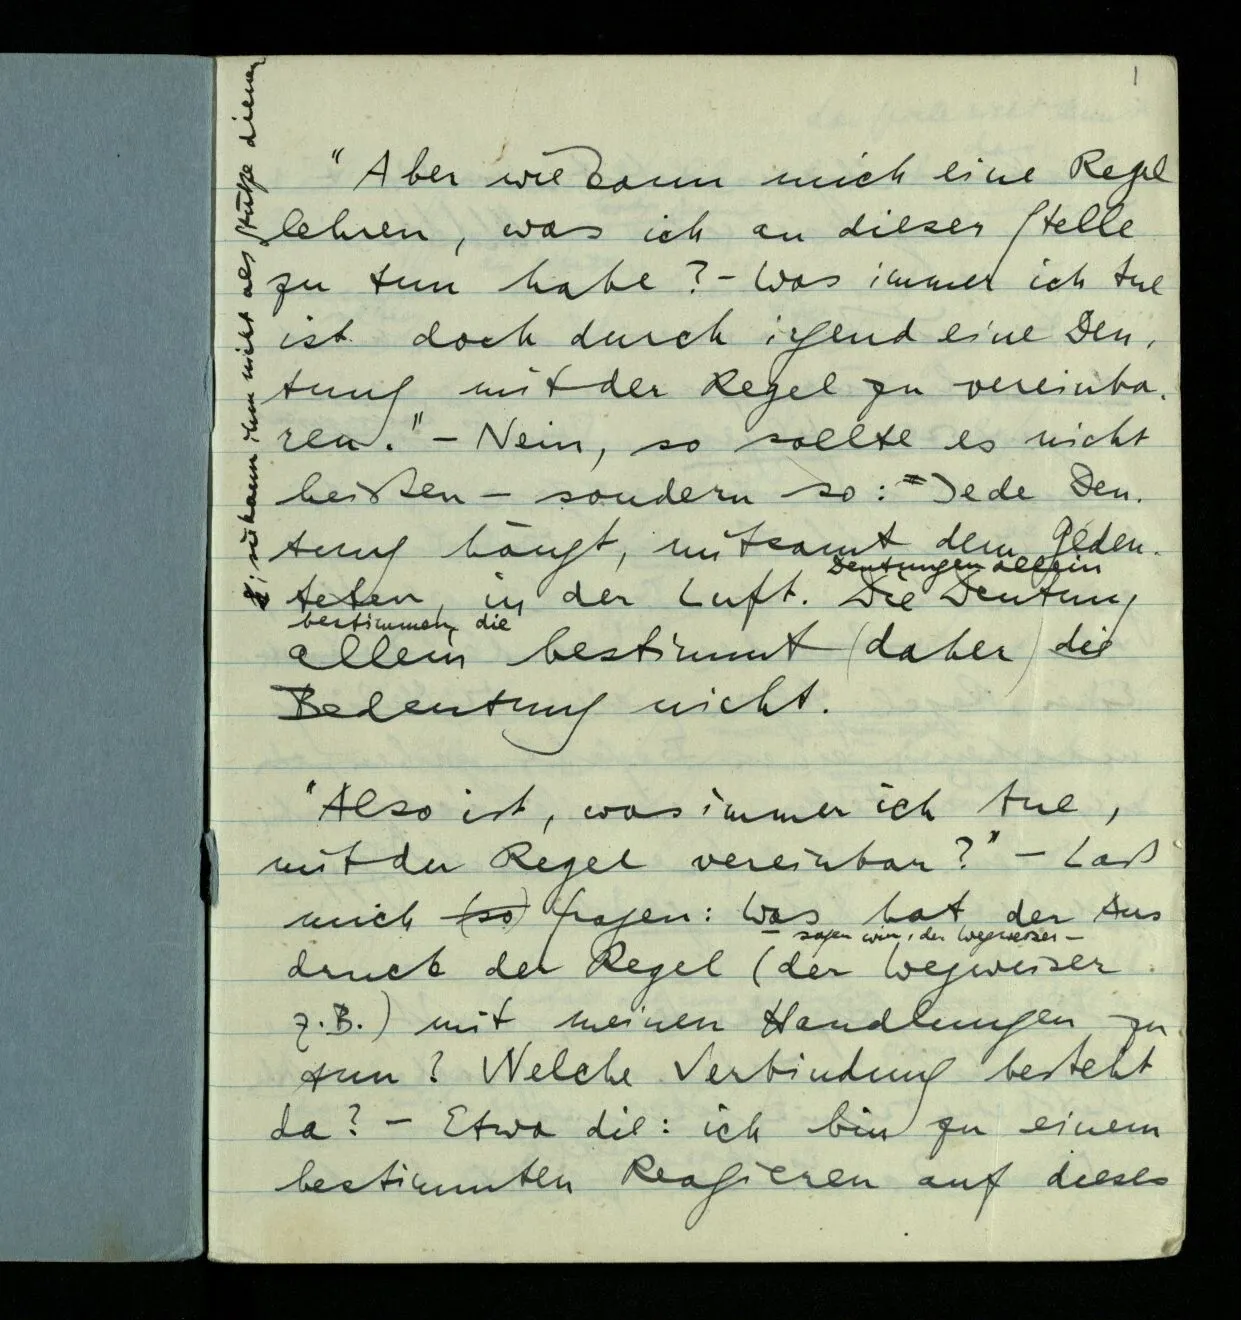 1
"Aber wie kann mich eine Regel
lehren, was ich an dieser Stelle
zu tun habe? – Was immer ich tue
ist doch durch irgend eine Deu-
tung mit der Regel zu vereinba-
ren." – Nein, so sollte es nicht
heißen – sondern so: Jede Deu-
tung hängt, mitsamt dem Gedeu-
Deutungen allein
teten, in der Luft. Die Deutung
bestimmen die
allein bestimmt (daher) die
Bedeutung nicht.
; sie kann ihm nicht als Stütze dienen
"Also ist, was immer ich tue,
mit der Regel vereinbar?" – Laß
mich (so) fragen: Was hat der Aus
sagen wir, der Wegweiser –
druck der Regel (der Wegweiser
z.B.) mit meinen Handlungen zu
tun? Welche Verbindung besteht
da? – Etwa die: ich bin zu einem
bestimmten Reagieren auf dieses